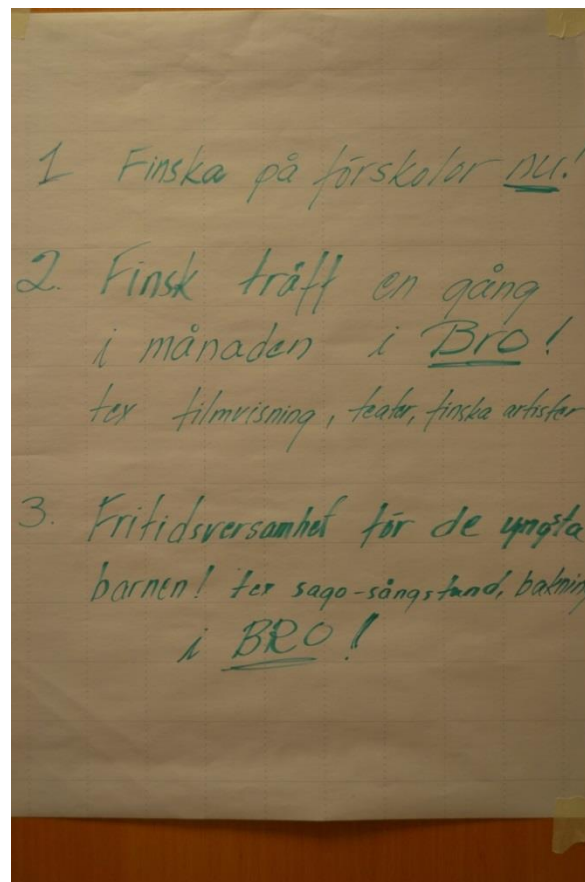 1 Finska på förskolor nu!
2. Finsk träff en gång
i månaden i Bro!
tex filmvisning, teater, finska artister
3. Fritidsversamhet för de yngsta
barnen! tex sago-sångstund, bakning
i BRO!